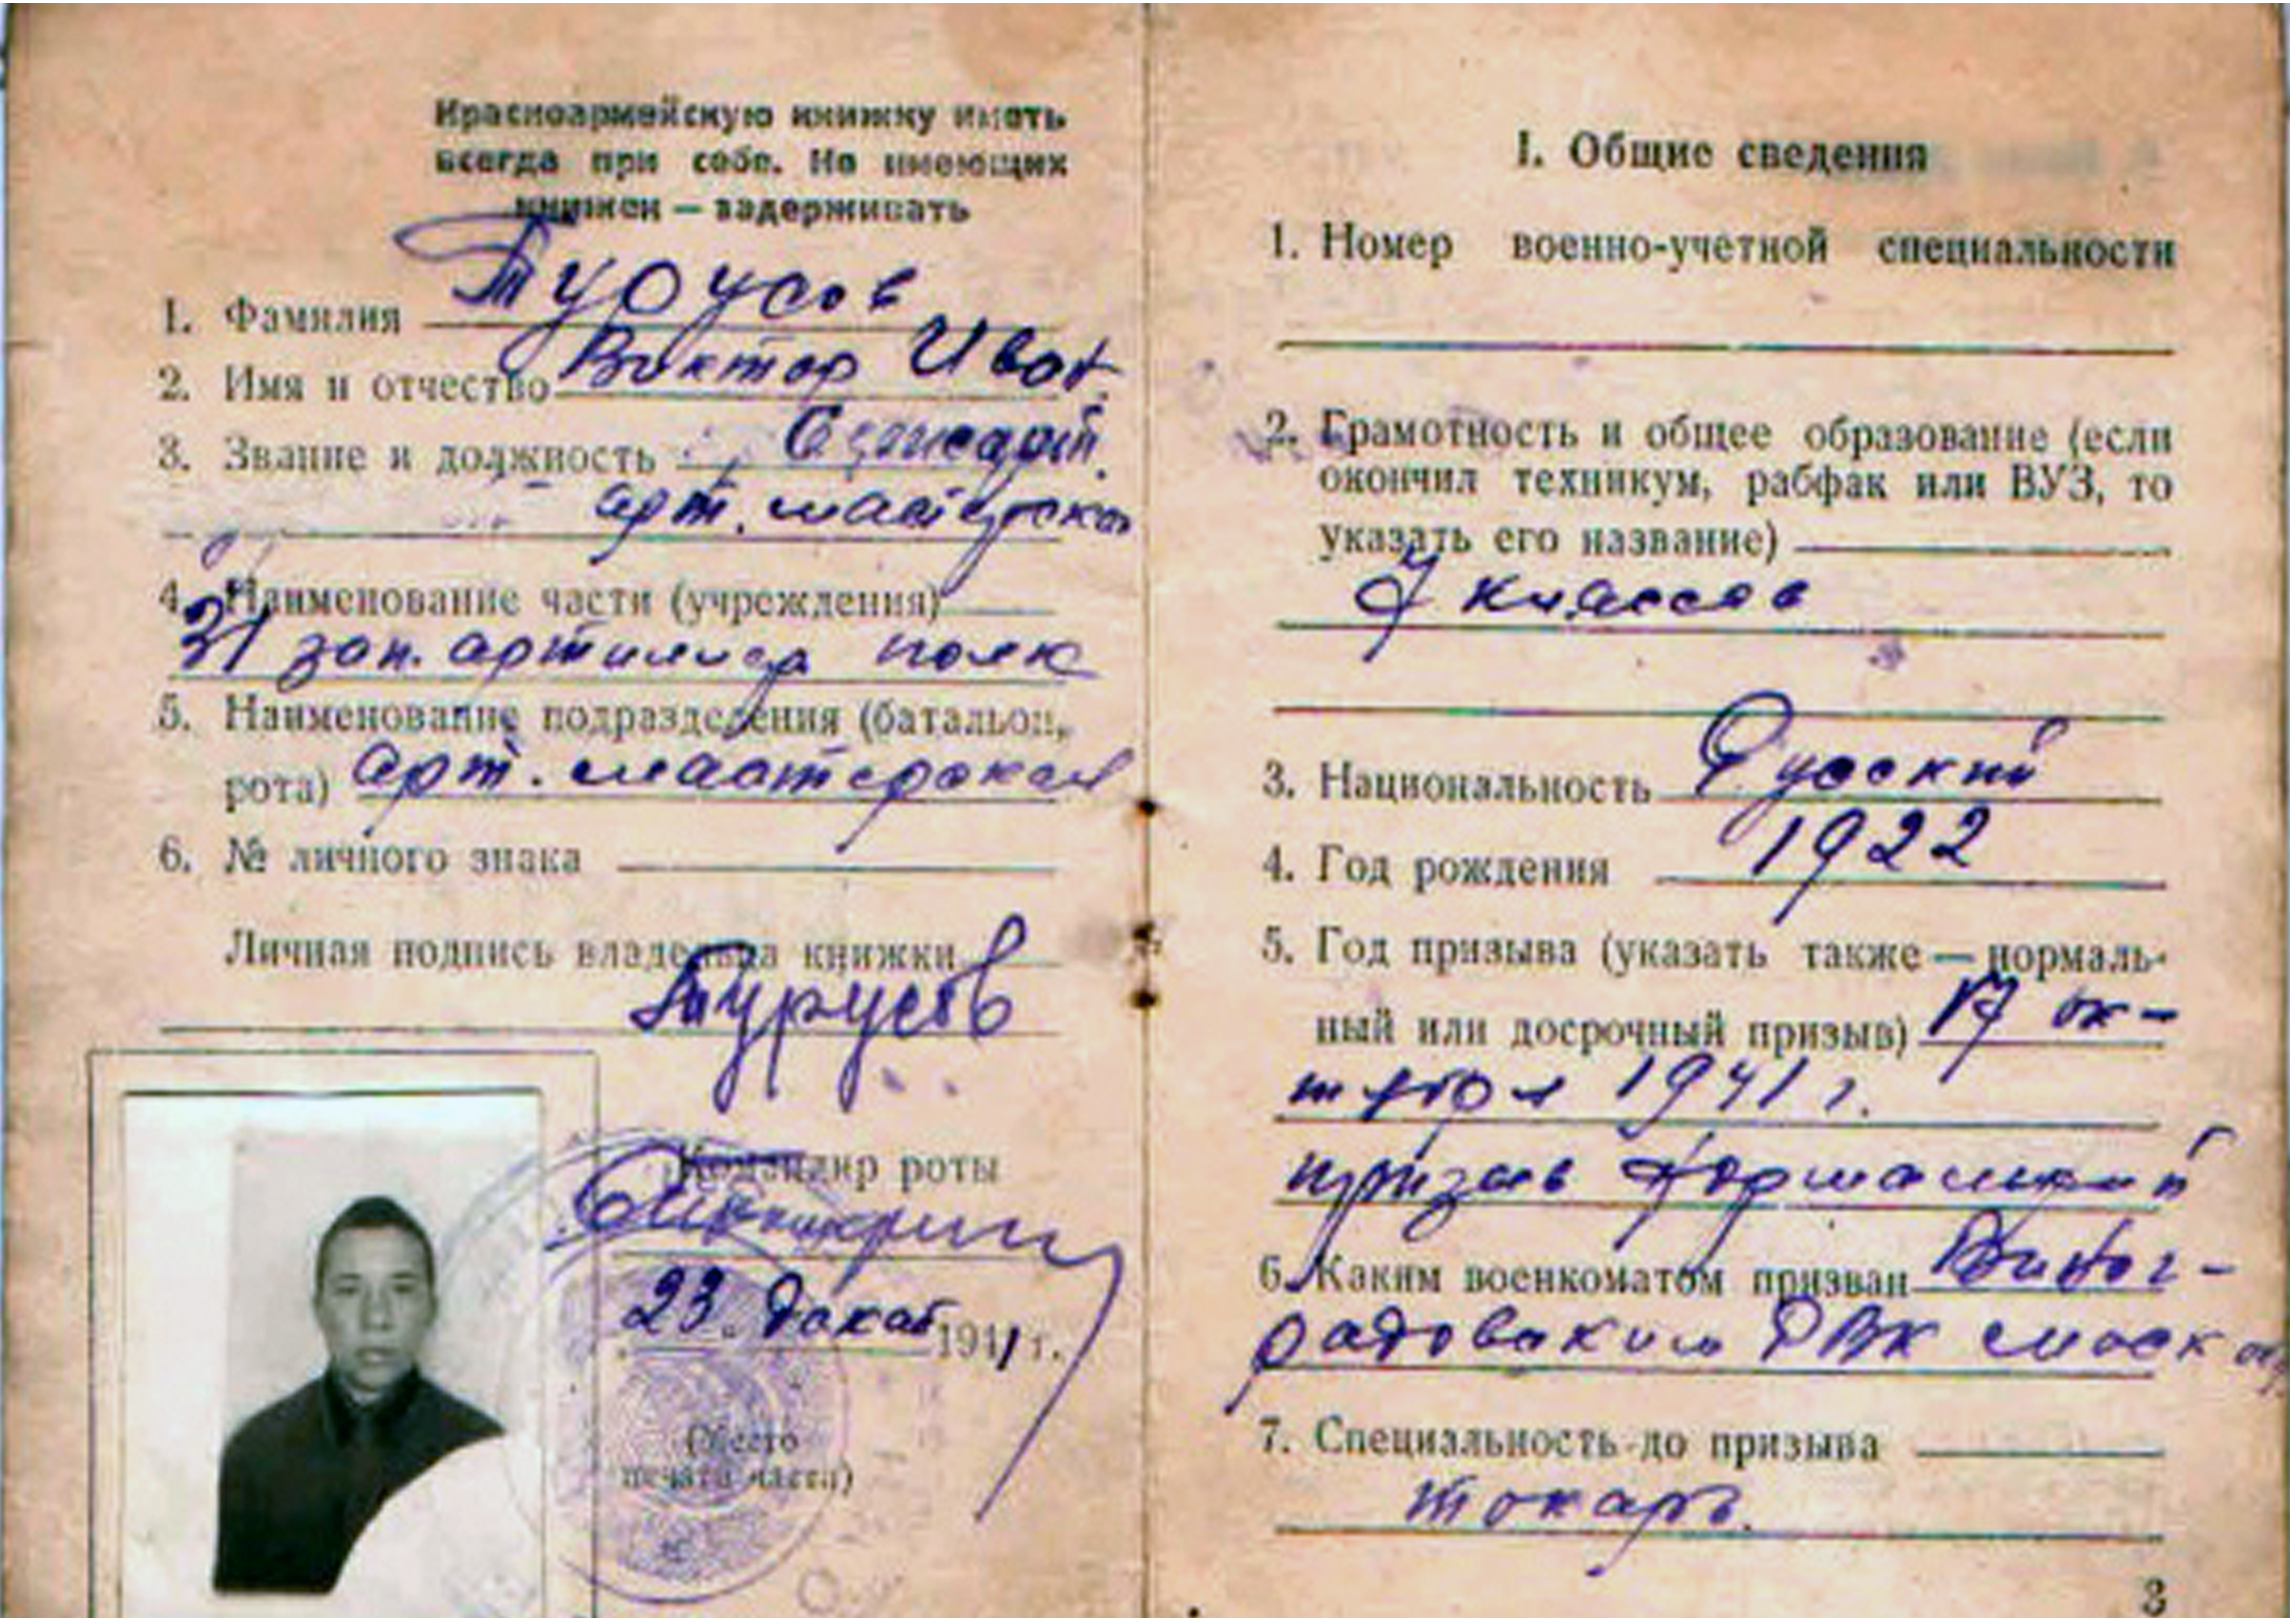 Красноармейскую книжку иметь
всегда при себе. Не имеющих
книжек — задерживать
1. Фамилия Турусов
2. Имя и отчество Виктор Иван.
3. Звание и должность
арт. мастерская
4. Наименование части (учреждения)
31 зап. артилиер полк
5. Наименование подразделения (батальон,
рота) арт. мастерская
6. № личного знака
Личная подпись владельца книжки
Турусов
Командир роты
23. Декаб 1941 г.
(Место
печати части)
I. Общие сведения
1. Номер военно-учетной специальности
2. Грамотность и общее образование (если
окончил техникум, рабфак или ВУЗ, то
указать его название)
7 классов
3. Национальность Русский
4. Год рождения 1922
5. Год призыва (указать также — нормаль-
ный или досрочный призыв) 17 ок-
тября 1941 г.
призыв Нормальный
6. Каким военкоматом призван Виног-
радовским РВК моск
7. Специальность до призыва
токарь.
3